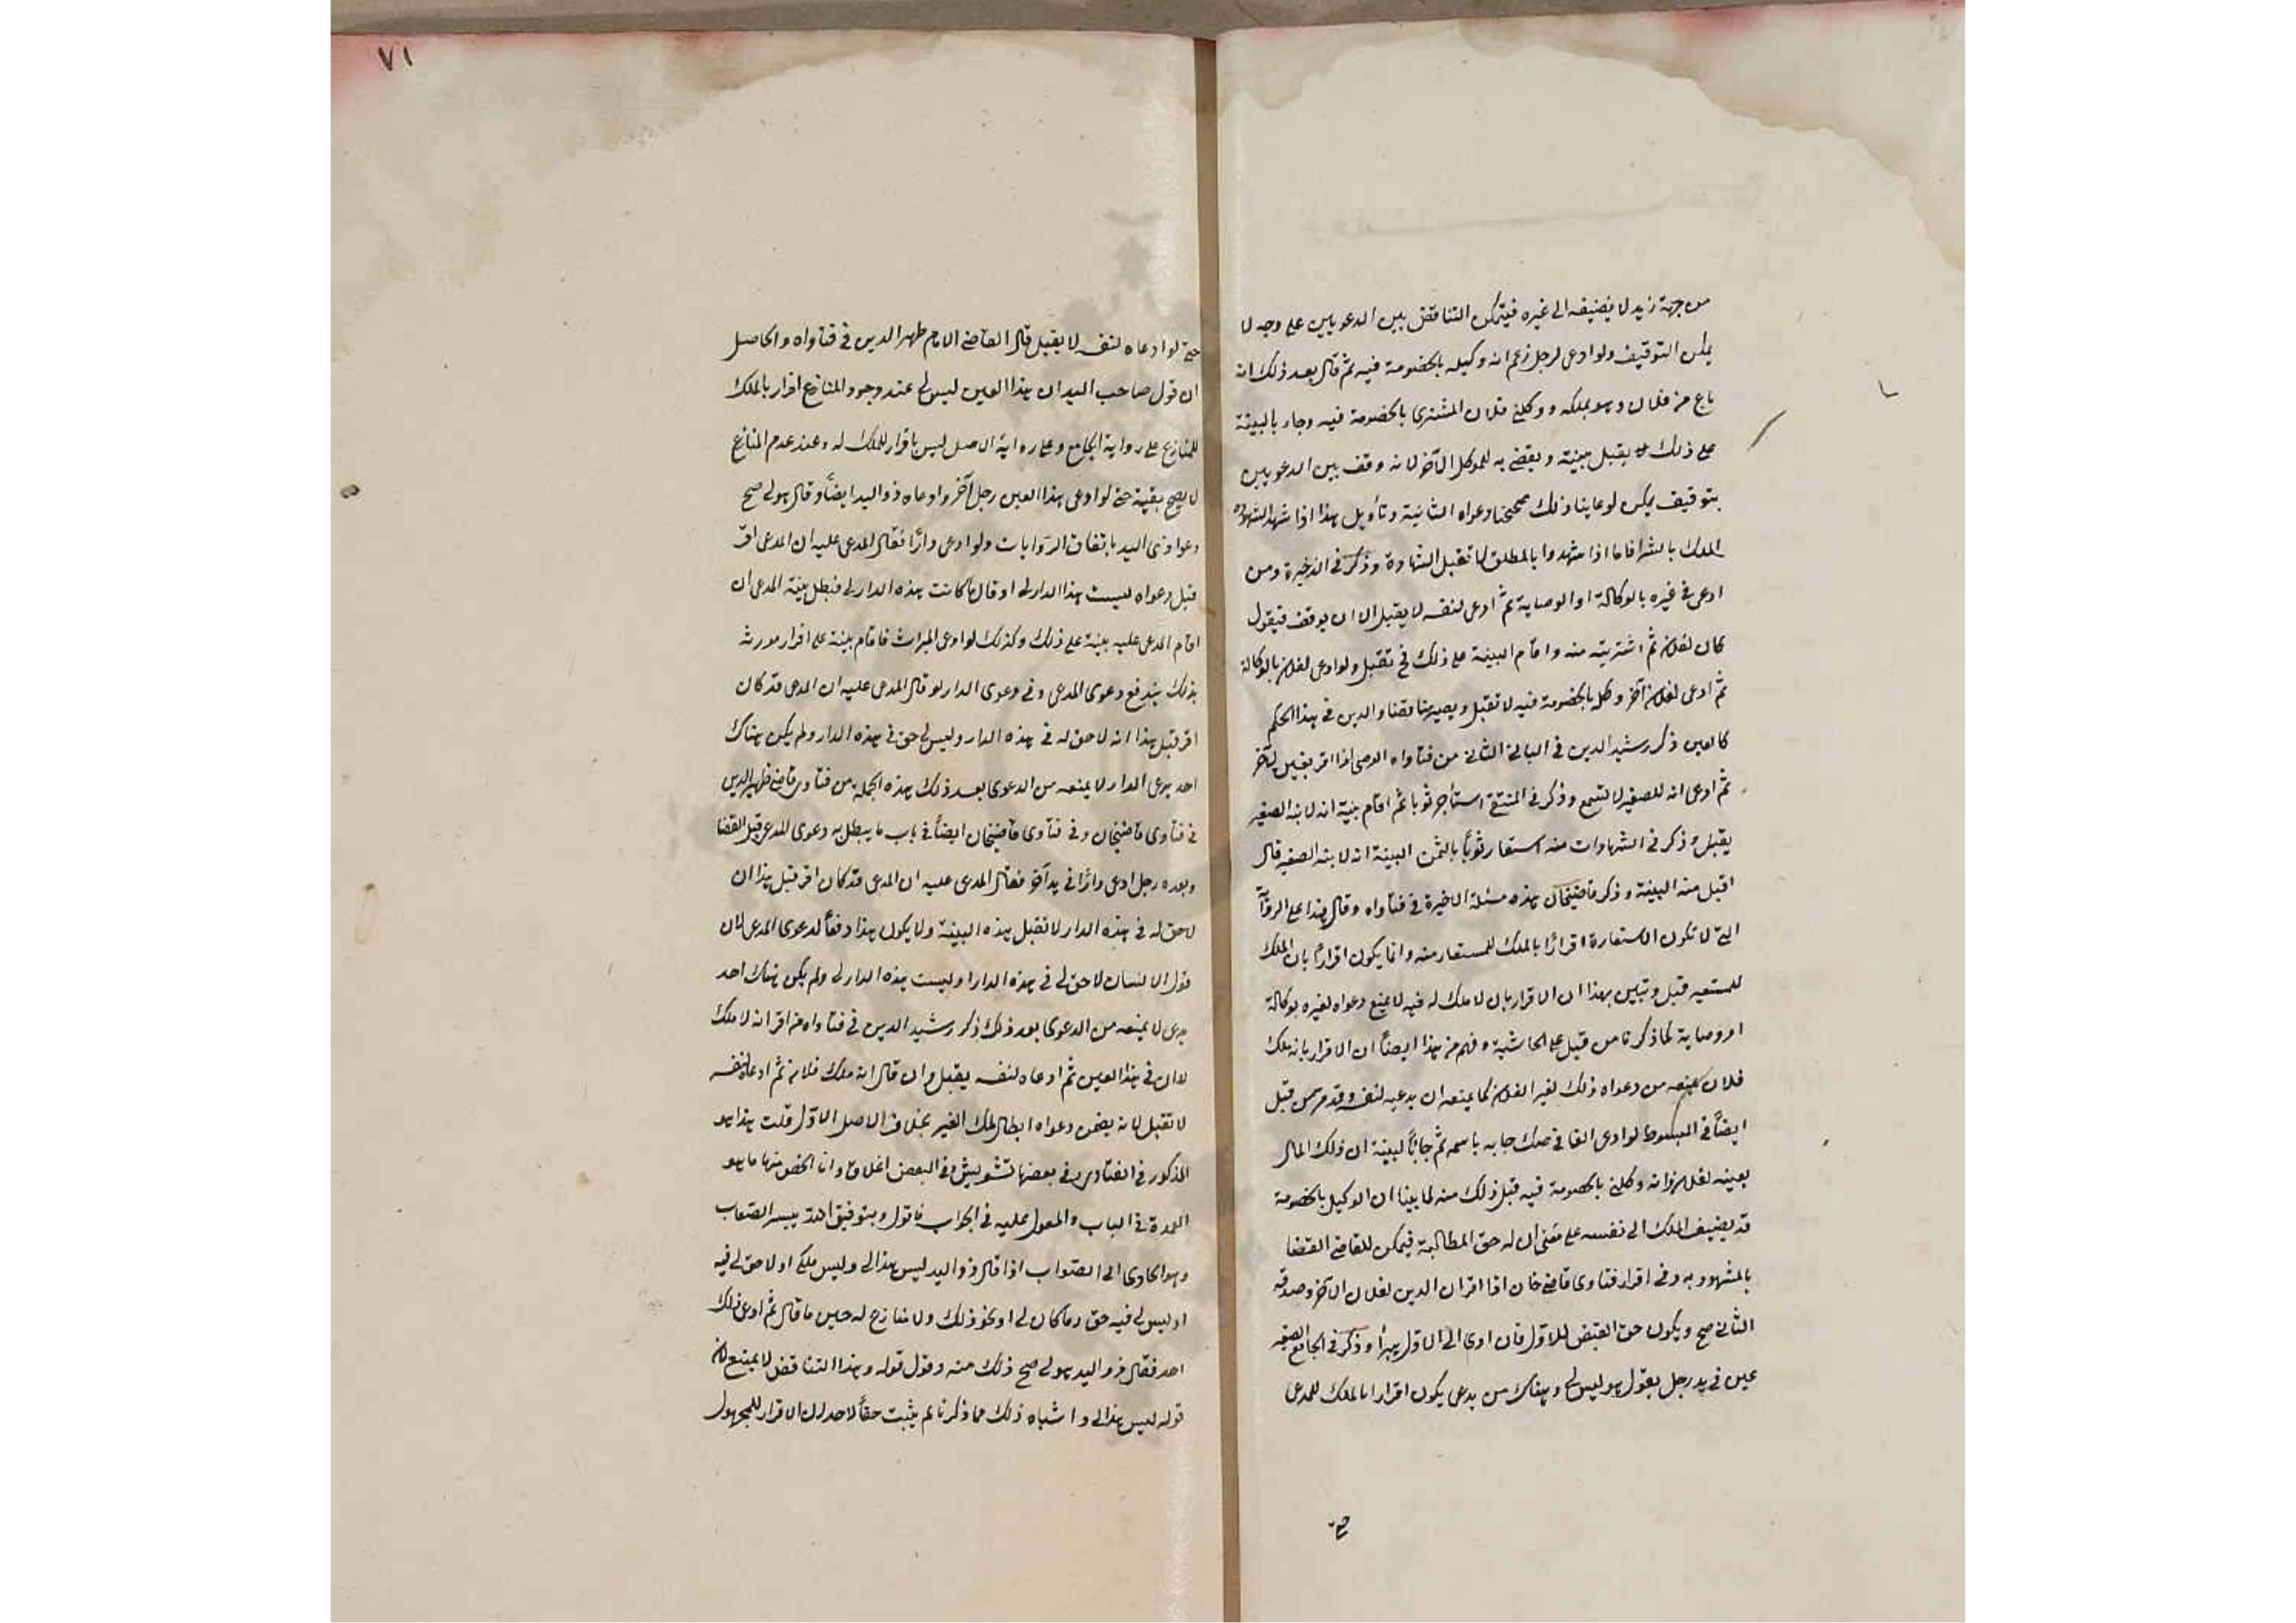 من جهة زيد لا يضيفه الى غيره فيتمكن التناقض بين الدعويين على وجه لا
يمكن التوفيق ولو ادعى لرجل زعم انه وكيله بالخصومة فيه ثم قال بعد ذلك انه
باع من فلان وهو يملكه ووكلني فلان المشترى بالخصومة فيه وجاء بالبينة
على ذلك يقبل بينته ويقضى به للموكل الآخر لانه وفق بين الدعويين
بتوفيق يمكن لو عاينا ذلك صححنا دعواه الثانية وتأويل هذا اذا شهد الشهود
الملك بالشرا فاما اذا شهدوا بالمطلق لا تقبل الشهادة وذكر في الذخيرة ومن
ادعى في غيره بالوكالة او الوصاية ثم ادعى لنفسه لا يقبل الا ان يوفق فيقول
كان لفلان ثم اشتريته منه واقام البينة على ذلك فح تقبل ولو ادعى لفلان بالوكالة
ثم ادعى لفلان آخر وكله بالخصومة فيه لا تقبل ويصير متناقضا والدين في هذا الحكم
كالعين ذكر رشيد الدين في الثاني من فتاواه الوصى اذا اقر بعين لآخر
ثم ادعى انه للصغير لا تسمع وذكر في المنتقى استأجر ثوبا ثم اقام بينة انه لابنه الصغير
يقبل وذكر في الشهادات منه استعار ثوباً البينة انه لابنه الصغير قال
اقبل منه البينة وذكر قاضيخان هذه مسئلة الاخيرة في فتاواه وقال هذا على الرواية
التي لا تكون الاستعارة اقرارًا بالملك للمستعار منه وانما يكون اقرارًا بان لا ملك
للمستعير قبل وتبين بهذا ان الاقرار بان لا ملك له فيه لا يمنع دعواه لغيره بوكالة
او وصاية لما ذكرنا من قبل على الحاشية وفهم من هذا ايضاً ان الاقرار بانه ملك
فلان يمنعه من دعواه ذلك لغير الفلان كما يمنعه ان يدعيه لنفسه وقد مر من قبل
ايضاً في المبسوط لو ادعى الفا في صك جا به باسمه ثم جا بالبينة ان ذلك المال
بعينه لفلان وانه وكلني بالخصومة فيه قبل ذلك منه لما بينا ان الوكيل بالخصومة
قد يضيف الملك الى نفسه على معنى ان له حق المطالبة فيمكن للقاضى القضا
بالمشهود به وفي اقرار فتاوى قاضى خان اذا اقر ان الدين لفلان الآخر وصدقه
الثاني صح ويكون حق القبض للاول فان ادى الى الاول يبرأ وذكر في الجامع الصغير
عين في يد رجل يقول هو ليس لي وهناك من يدعى يكون اقرارا بالملك للمدعى
حتى
٧١
حتى لو ادعاه لنفسه لا يقبل قال القاضى الامام ظهير الدين في فتاواه والحاصل
ان قول صاحب اليد ان هذا العين ليس لي عند وجود المنازع اقرار بالملك
للمنازع على رواية الجامع وعلى رواية الاصل ليس باقرار للملك له وعند عدم المنازع
لا يصح حتى لو ادعى هذا العين رجل آخر وادعاه ذو اليد ايضاً وقال هو لي صح
دعوا ذى اليد باتفاق الروايات ولو ادعى دارًا فقال المدعى عليه ان المدعى اقر
قبل دعواه ليست هذا الدار لي او قال ما كانت هذه الدار لي فبطل بينة المدعى ان
اقام المدعى عليه بينة على ذلك وكذلك لو ادعى الميراث فاقام بينة على اقرار مورثه
بذلك يندفع دعوى المدعى وفي دعوى الدار لو قال المدعى عليه ان المدعى قد كان
اقر قبل هذا انه لا حق له في هذه الدار وليس لي حق في هذه الدار ولم يكن هناك
احد يدعى الدار لا يمنعه من الدعوى بعد ذلك هذه الجملة من فتاوى قاضى ظهير الدين
في فتاوى قاضيخان وفي فتاوى قاضيخان ايضاً في باب ما يبطل به دعوى المدعى قبل القضا
وبعده رجل ادعى دارًا في يد آخر فقال المدعى عليه ان المدعى قد كان اقر قبل هذا ان
لا حق له في هذه الدار لا تقبل هذه البينة ولا يكون هذا دفعاً لدعوى المدعى لان
قول الانسان لا حق لي في هذه الدار او ليست هذه الدار لي ولم يكن هناك احد
يدعى لا يمنعه من الدعوى بعد ذلك ذكر رشيد الدين في فتاواه من اقر انه لا ملك
لي في هذا العين ثم ادعاه لنفسه يقبل وان قال انه ملك فلان ثم ادعاه لنفسه
لا تقبل لانه يضمن دعواه ابطال ملك الغير بخلاف الاصل الاول قلت هذا هو
المذكور في الفتاوى وفي بعضها تشويش وفي البعض اغلاق وانا الخص منها ما هو
العمدة في الباب والمعول عليه في الجواب فاقول وبتوفيق الله ييسر الصعاب
وهو الهادى الى الصواب اذا قال ذو اليد ليس هذا لي وليس ملكي او لا حق لي فيه
او ليس لي فيه حق وما كان لي او نحو ذلك ولا منازع له حين ما قال ثم ادعى ذلك
احد فقال ذو اليد هو لي صح ذلك منه وقول قوله وهذا التناقض لا يمنع لان
قوله ليس هذا لي واشباه ذلك مما ذكرنا لم يثبت حقاً لاحد لان الاقرار للمجهول